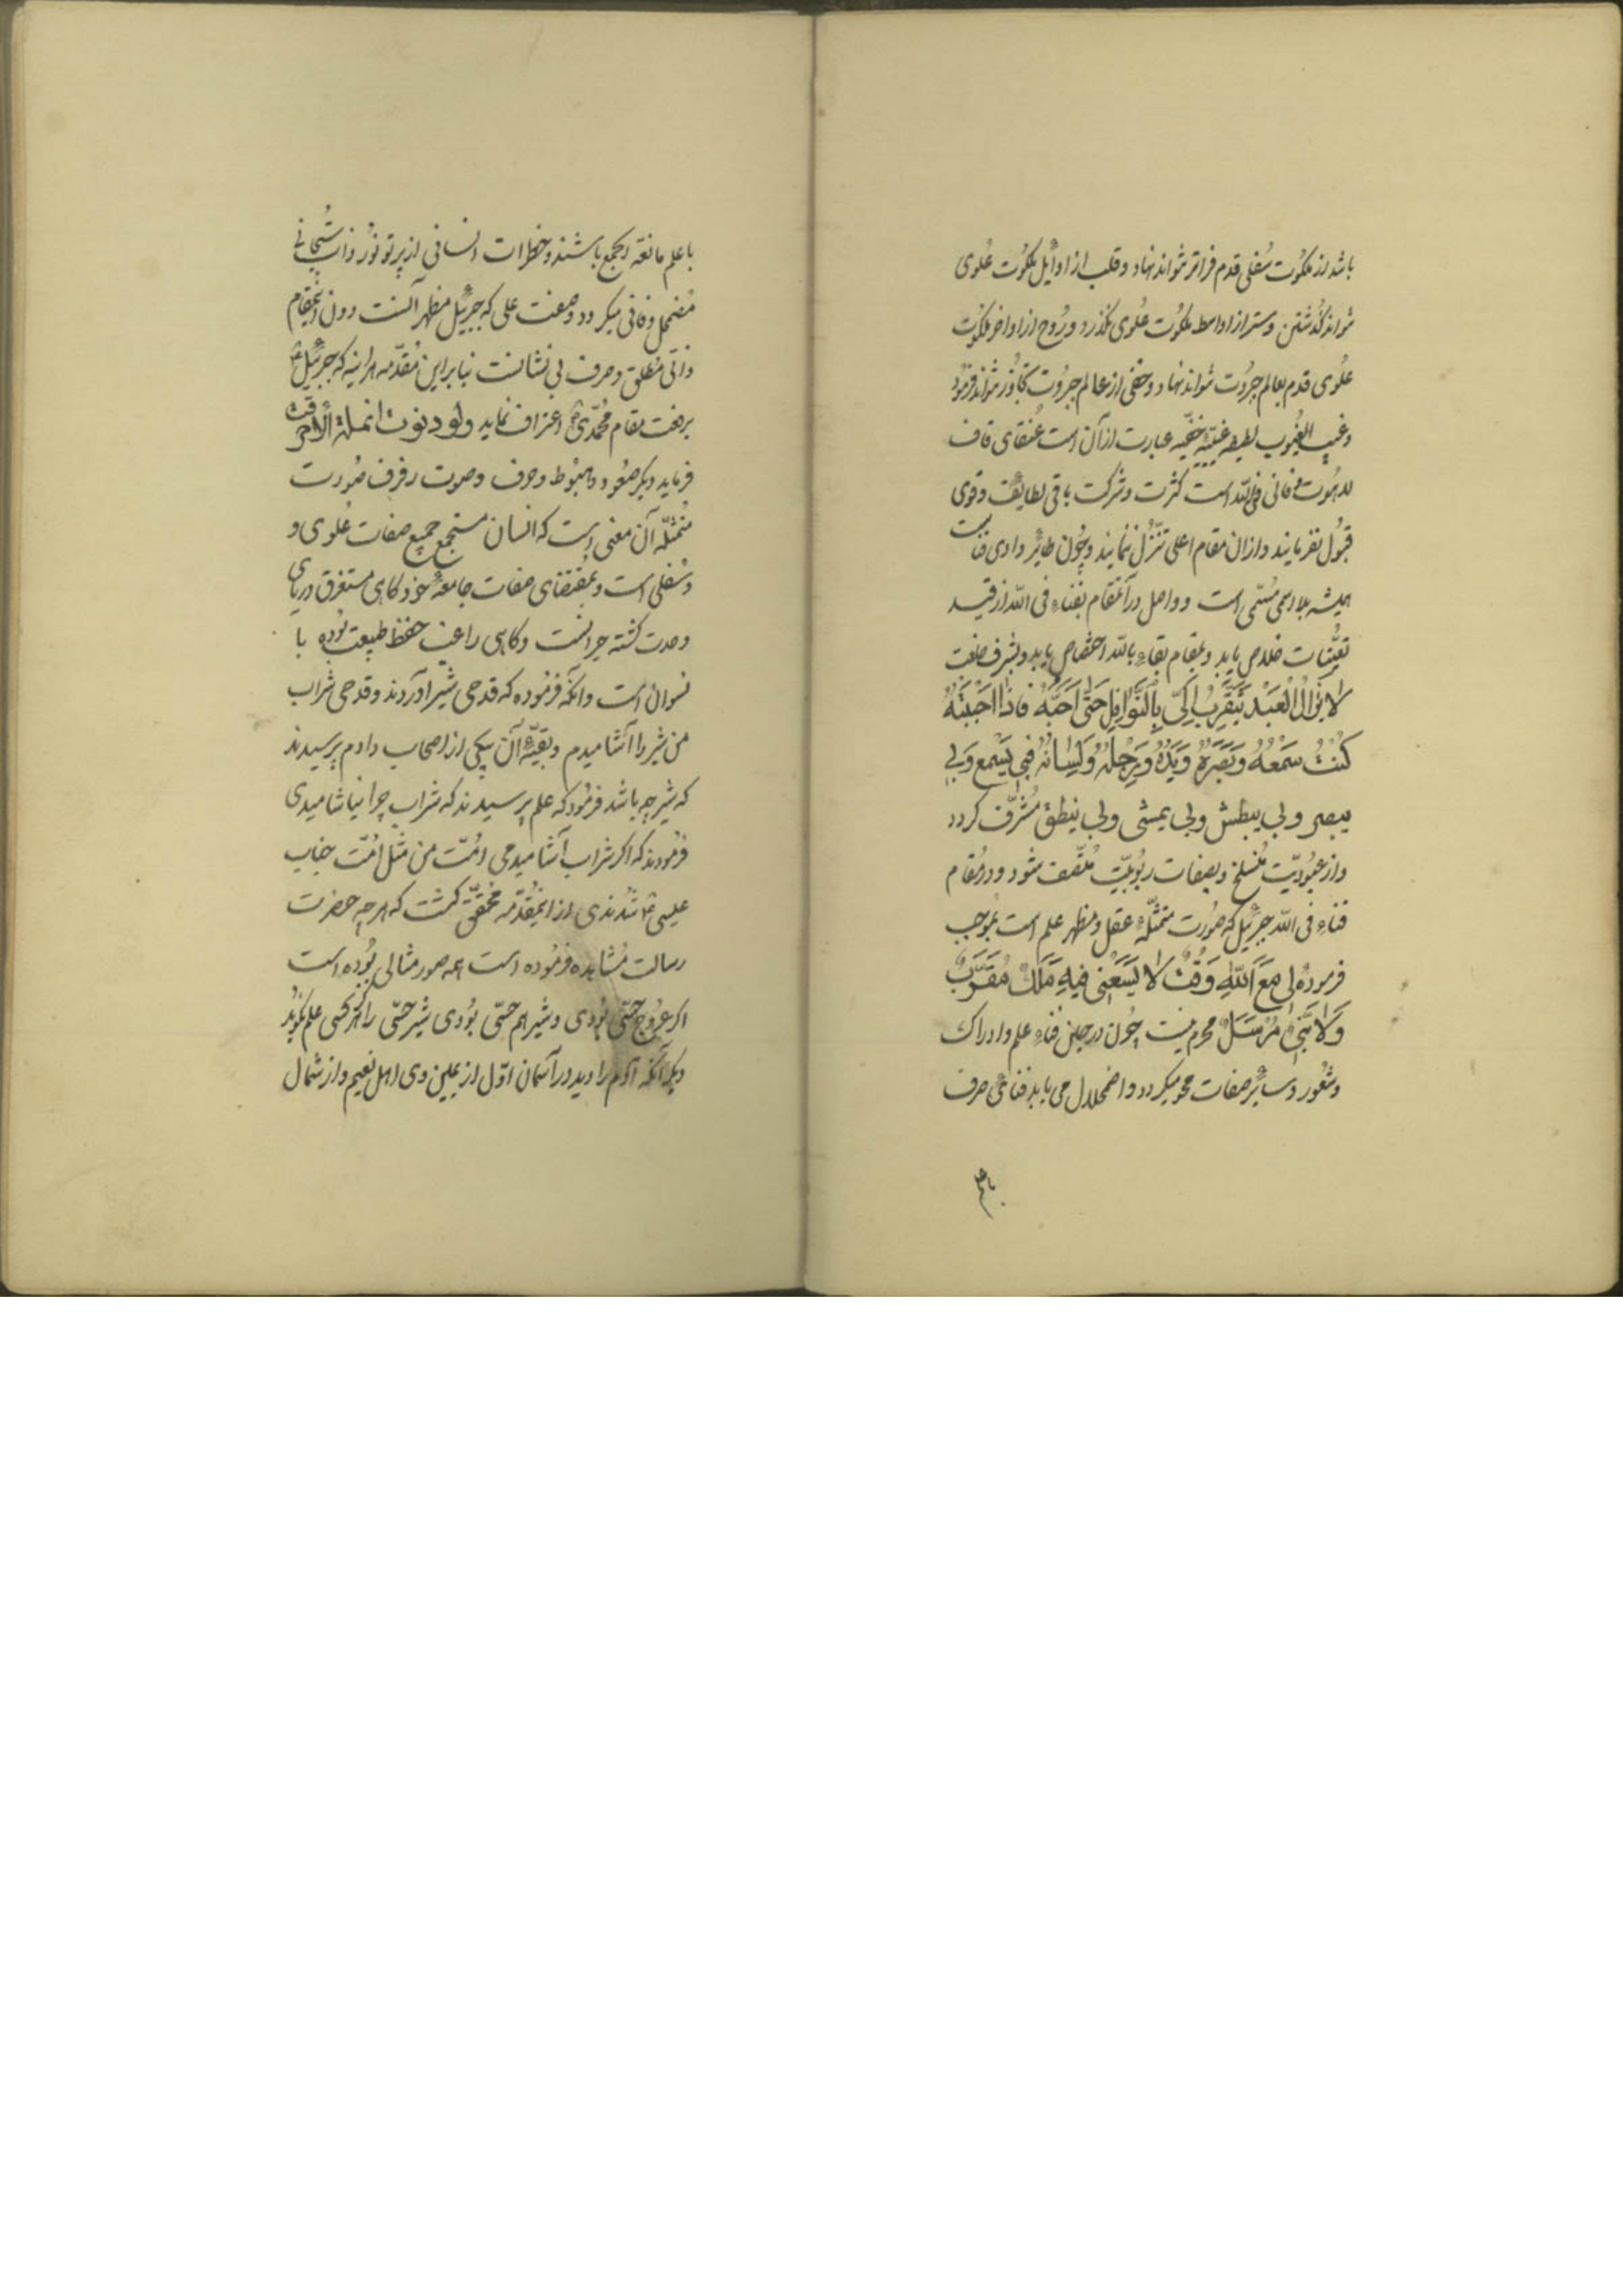 باشد از ملکُوت سُفلی قدم فراتر نتواند نهاد و قلب از اوایل ملکُوت عُلوی
نتواند گذشتن و سِتر از اواسط ملکُوت عُلوی نگذرد و رُوح از اواخر ملکُوت
عُلوی قدم بعالم جبرُوت نتواند نهاد و خفی از عالم جبرُوت تجاوُز نتواند فرمُود
و غیب الغیُوب لطیفه غیبیّه خفیّه عبارت از آن است عُنقای قاف
لاهُوت فانی فی الله است کثرت و شرکت باقی لطایف و قوی
قبُول نفرمایند و از ان مقام اعلی تنزّل ننمایند و چُون طایر وادی فناست
همیشه بلا اسمی مُسمّی است و واصل در آنمقام بفناء فی الله از قید
تعیُّنات خلاص یابد و بمقام بقاء بالله اختصاص یابد و بشرف خلعت
لا یزالُ الْعَبْد یَتَقَرَّبُ اِلَیَّ بِالنَّوَافِلِ حَتّٰی اُحِبَّهُ فَاذا اَحْبَبْتُهُ
کُنْتُ سَمْعَهُ وَبَصَرَهُ وَیَدَهُ وَرِجْلَهُ وَلِسَانَهُ فَبِی یَسْمَع وَبی
یبصر وبی یبطش وبی یمشی وبی ینطق مُشرَّف گردد
و از عبُودیّت مُنسلخ و بصفات ربُوبیّت مُتّصف شود و در مُقام
فناءِ فی الله جبرئیل که صُورت متمثّلهٔ عقل و مظهر علم است بمُوجب
فرموده لِی مَعَ اَللّٰهِ وَقْتٌ لا یَسَعُنِی فِیهِ مَلَكٌ مُقَرَّبٌ
وَلا نَبِیٌّ مُرْسَلٌ محرم نیست چُون در حین فناء علم و ادراک
و شعُور و سایر صفات محو میگردد و اضمحلال می یابد فنای صرف
با علم
با علم مانعة الجمع باشند و خطرات انسانی از پرتو نُور ذات سُبحانی
مُضمحل و فانی میگردد و صفت علمی که جبرئیل مظهر آنست دون اینمقام
ذاتی مُطلق و صرف بی نشانست بنابراین مُقدّمه هرآینه که جبرئیل ع
برفعت مقام محُمّدی ص اعتراف نماید ولو دنوت انملة لاحترقت
فرماید دیگر صعُود و هبُوط و حرف و صوت رفرف صُورت
مُتمثّله آن معنی است که انسان مستجمع جمیع صفات عُلوی و
و سُفلی است و بمُقتضای صفات جامعهٔ خود گاهی مستغرق دریای
وحدت گشته حیرانست و گاهی راغب حفظ طبیعت بُوده با
نسوان است و آنکه فرمُوده که قدحی شیر آوردند و قدحی شراب
من شیر را آشامیدم و بقیّهٔ آن بیکی از اصحاب دادم پرسیدند
که شیر چه باشد فرمُود که علم پرسیدند که شراب چرا نیاشامیدی
فرمُودند که اگر شراب آشامیدمی اُمّت من مثل اُمّت جناب
عیسی ع شُدندی از اینمُقدّمه مُحقّق گشت که هرچه حضرت
رسالت مُشاهده فرمُوده است همه صور مثالی بُوده است
اگر عرُوج حسّی بُودی و شیر هم حسّی بُودی شیر حسّی را هرگز کسی علم نگُوید
دیگر آنکه آدم را دید در آسمان اوّل از یمین وی اهل نعیم و از شمال